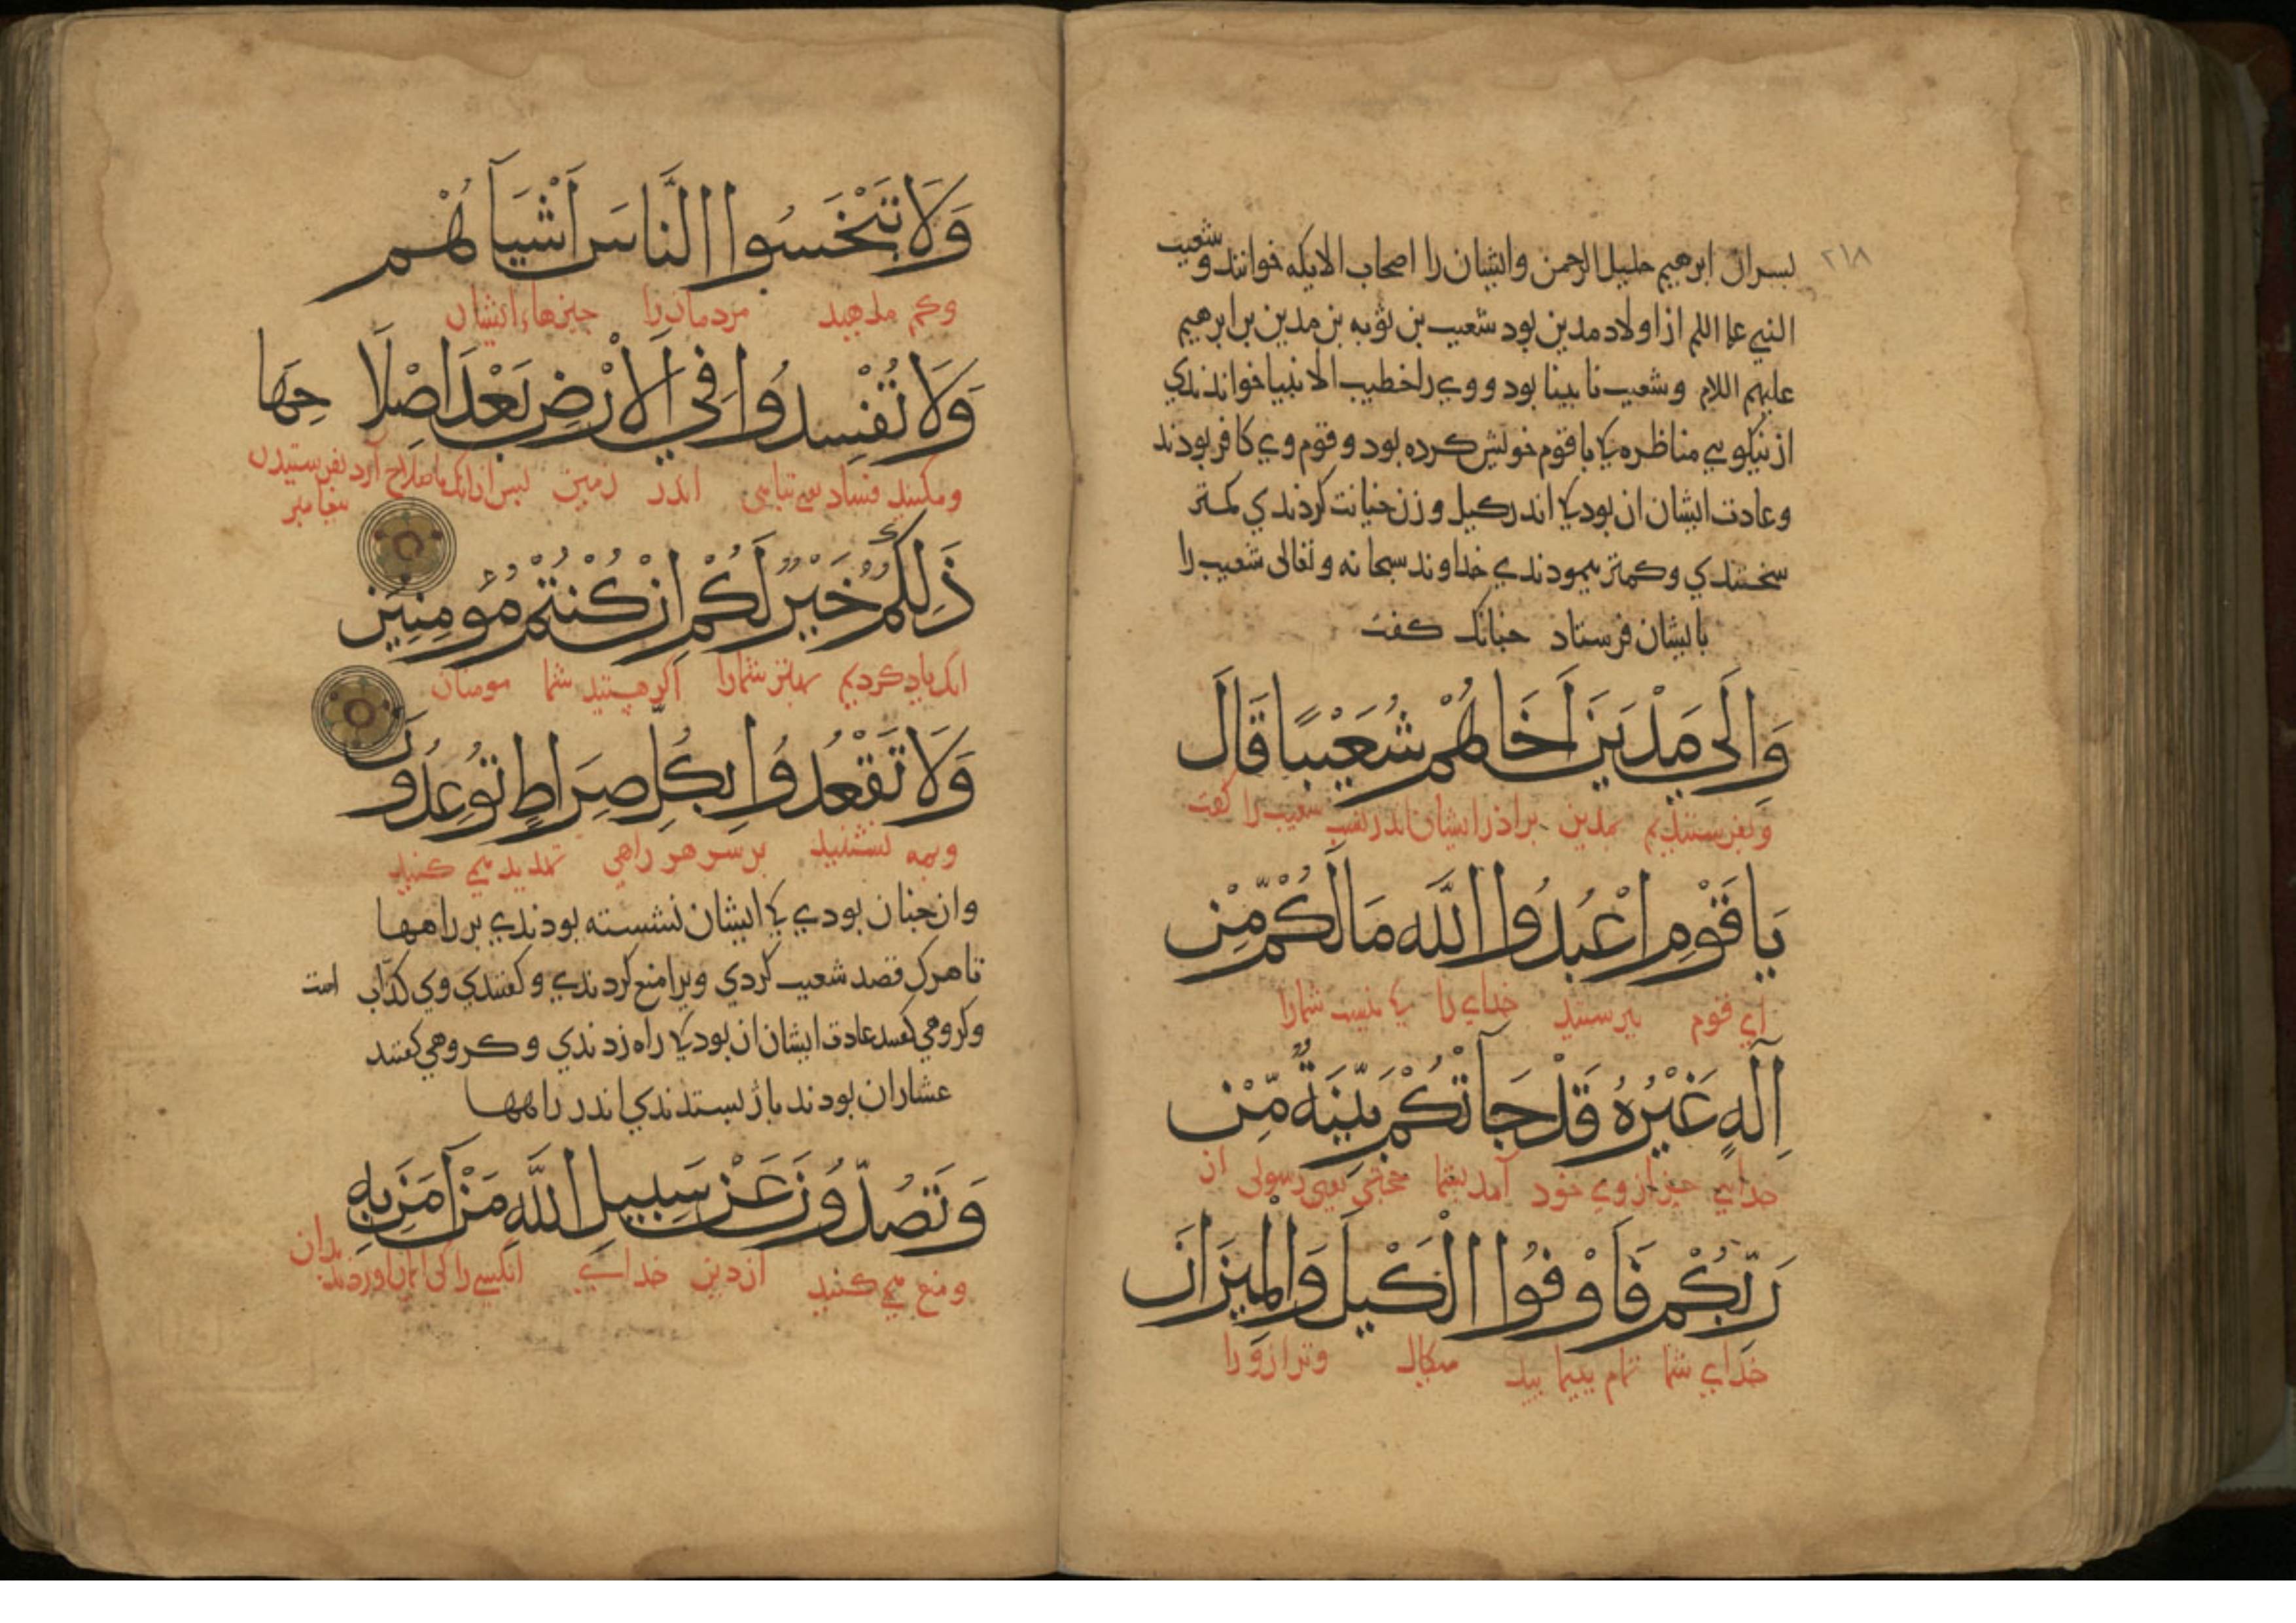 ٢١٨
پسران ابرهيم خليل الرحمن وايشان را اصحاب الايكه خوانند و شعيب
النبي از اولاد مدين بود شعيب بن نويه بن مدين بن ابرهيم
عليهم اللام وشعيب نابينا بود و وي را خطيب الانبيا خواندندي
از نيكويي مناظره كا با قوم خويش كرده بود و قوم وي كافر بودند
وعادت ايشان ان بود كا اندر كيل و زن خيانت كردندي كمتر
سختندي و كمتر پيمودندي خداوند سبحانه و تعالى شعيب را
بايشان فرستاد چنانك كفت
وَاِلَى مَدْيَنَ اَخَاهُمْ شُعَيْبًا قَالَ
وبفرستيديم بمدين براذر ايشان اندر نسب شعيب را كفت
يَا قَوْمِ اعْبُدُوا اللَّهَ مَا لَكُمْ مِّنْ
اي قوم بپرستيد خداي را كا نيست شمارا
اِلَهٍ غَيْرُهُ قَدْ جَآتْكُمْ بَيِّنَةٌ مِّنْ
خدايي جز از وي خود آمد بشما حجتي يعني رسولى از
رَبِّكُمْ فَاَوْفُوا الْكَيْلَ وَالْمِيزَانَ
خداي شما تمام بپيماييد ميكال وترازو را
وَلَا تَبْخَسُوا النَّاسَ اَشْيَآهُمْ
وكم مدهيد مردمان را چيزهاء ايشان
وَلَا تُفْسِدُوا فِي الْاَرْضِ بَعْدَ اِصْلَاحِهَا
ومكنيد فساد يعني تباهي اندر زمين پس از انك باصلاح آرد بفرستيدن
پيغامبر
ذَلِكُمْ خَيْرٌ لَكُمْ اِنْ كُنْتُمْ مُؤْمِنِينَ
انك ياد كرديم بهتر شمارا اكر هستيد شما مومنان
وَلَا تَقْعُدُوا بِكُلِّ صِرَاطٍ تُوعِدُونَ
و مه نشينيد بر سر هر راهي تهديد مي كنيد
وان چنان بودي كا ايشان نشسته بودندي بر راهها
تا هرك قصد شعيب كردي ويرا منع كردندي و كفتندي وي كذّاب است
وكروهي كفتند عادت ايشان ان بود كا راه زدندي و كروهي كفتند
عشاران بودند باژ بستدندي اندر راهها
وَتَصُدُّونَ عَنْ سَبِيلِ اللَّهِ مَنْ آمَنَ بِهِ
ومنع مي كنيد از دين خداي انكسي را كى ايمان اوردند بدان